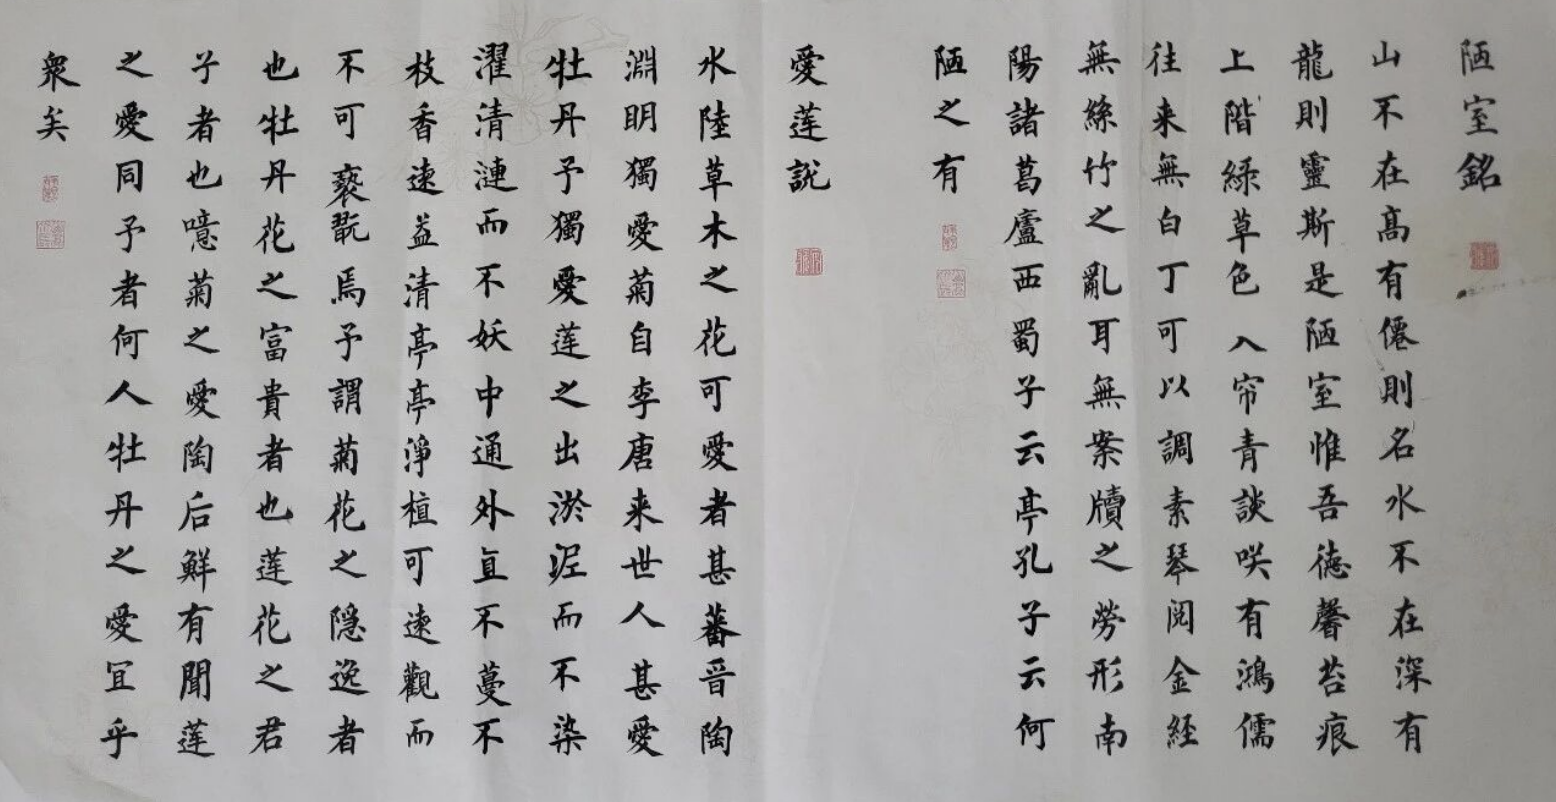 陋室銘
山不在高有僊則名水不在深有
龍則靈斯是陋室惟吾徳馨苔痕
上階緑草色入帘青談咲有鴻儒
往来無白丁可以調素琴閲金経
無絲竹之亂耳無案牘之勞形南
陽諸葛廬西蜀子云亭孔子云何
陋之有
愛莲説
水陸草木之花可愛者甚蕃晋陶
淵明獨愛菊自李唐来世人甚愛
牡丹予獨愛莲之出淤泥而不染
濯清漣而不妖中通外直不蔓不
枝香遠益清亭亭淨植可遠觀而
不可褻翫焉予謂菊花之隠逸者
也牡丹花之富貴者也莲花之君
子者也噫菊之愛陶后鮮有聞莲
之愛同予者何人牡丹之愛宜乎
衆矣